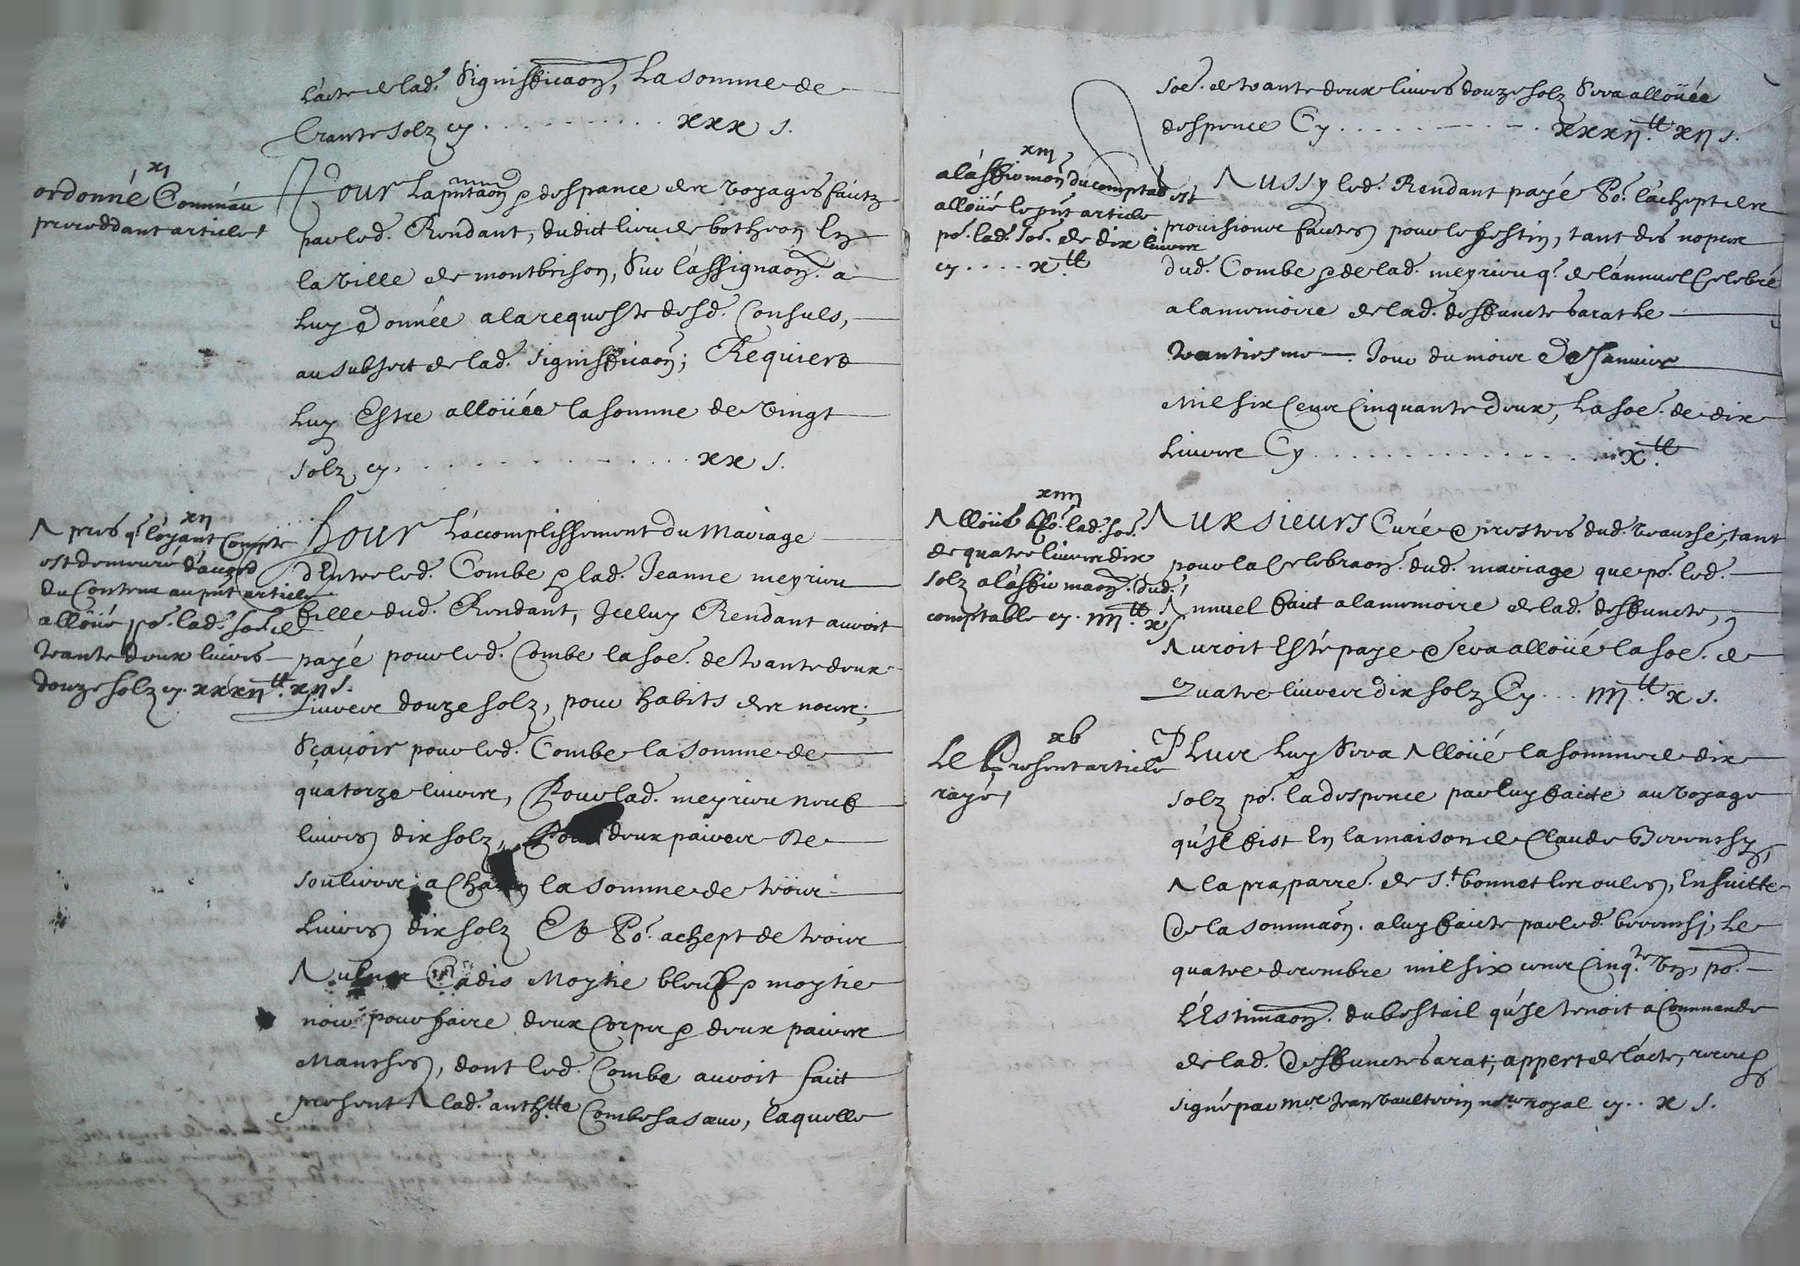 l'acte de lad. Signiffica͠on, La somme de
Trante solz cy . . . . . . . . . xxx s.
xj
ordonné Comme au
preceddant article
Pour La pn͠taon & despance des voyages faictz
par led. Rendant, dudict lieu de botheon En
la ville de montbrison, Sur l'assigna͠on. a
Luy Donnée a la requeste desd. Consuls,
au subject de lad. signiffica͠on; Requiert
Luy Estre allouée la somme de vingt
solz, cy. . . . . . . . . . . . . xx s.
xij
Apres q. l'oyant Compte
est demeuré d'acord
du Contenu au pn͠t article
alloué po. lad. so͠e. de
trante deux livres
douze solz cy. xxxij tt. xij s.
Pour L'accomplissement du Mariage
d'Entre led. Combe & lad. Jeanne meyrieu
fille dud. Rendant, Iceluy Rendant auroit
payé pour led. Combe la so͠e. de trante deux
Livres douze solz, pour habits des nopces,
Sçavoir pour led. Combe la somme de
quatorze livres, Pour lad. meyrieu neuf
livres dix solz, Pour deux paires de
souliers a Chacun la somme de trois
Livres dix solz Et Po. achept de trois
Aulnes Cadis Moytie bleuf & moytie
noir pour faire deux Corps & deux paires
Manches, dont led. Combe auroit faict
present A lad. anth.tte Combe sa sœur, laquelle
so͠e. de trante deux livres douze solz Sera allouée
despence Cy . . . . . . . . . xxxij tt. xij s.
xiij
a l'affirma͠on du comptable est
alloué le pn͠t article
po. lad. so͠e. de dix livres
cy . . . . x tt
Aussy led. Rendant payé Po. l'achept des
provisions faictes pour le festin, tant des nopces
dud. Combe & de lad. meyrieu q. de l'annuel Celebré
a la memoire de lad. deffuncte barat Le
trantiesme Jour du mois De Janvier
Mil six Cens Cinquante deux, La so͠e. de dix
Livres Cy . . . . . . . . . . . . . x tt
xiiij
Alloué Po. lad. so͠e.
de quatre livres dix
solz a l'affirma͠on. dud.
comptable cy. iiij tt. x s
Aux sieurs Curé & prestres dud. veauche, tant
pour la Celebra͠on. dud. mariage que po. led.
Annuel faict a la memoire de lad. deffuncte,
Auroit Esté paye & Sera alloué la so͠e. de
Quatre livres dix solz Cy . . . iiij tt x s.
xv
Le Present article
rayé
Plus Luy Sera Alloué la somme de dix
solz po. la despence par luy faicte au voyage
qu'Il fist En la maison de Claude
A la pra, parre. de St. bonnet les oules, En suitte
De la somma͠on. a luy faicte par led. Le
quatre decembre mil six cens Cinq.te po.
L'Estima͠on. du bestail qu'Il tenoit a Commande
de lad. Deffuncte barat, appert de l'acte, receu &
signé par me. Jean no.re royal cy . . x s.